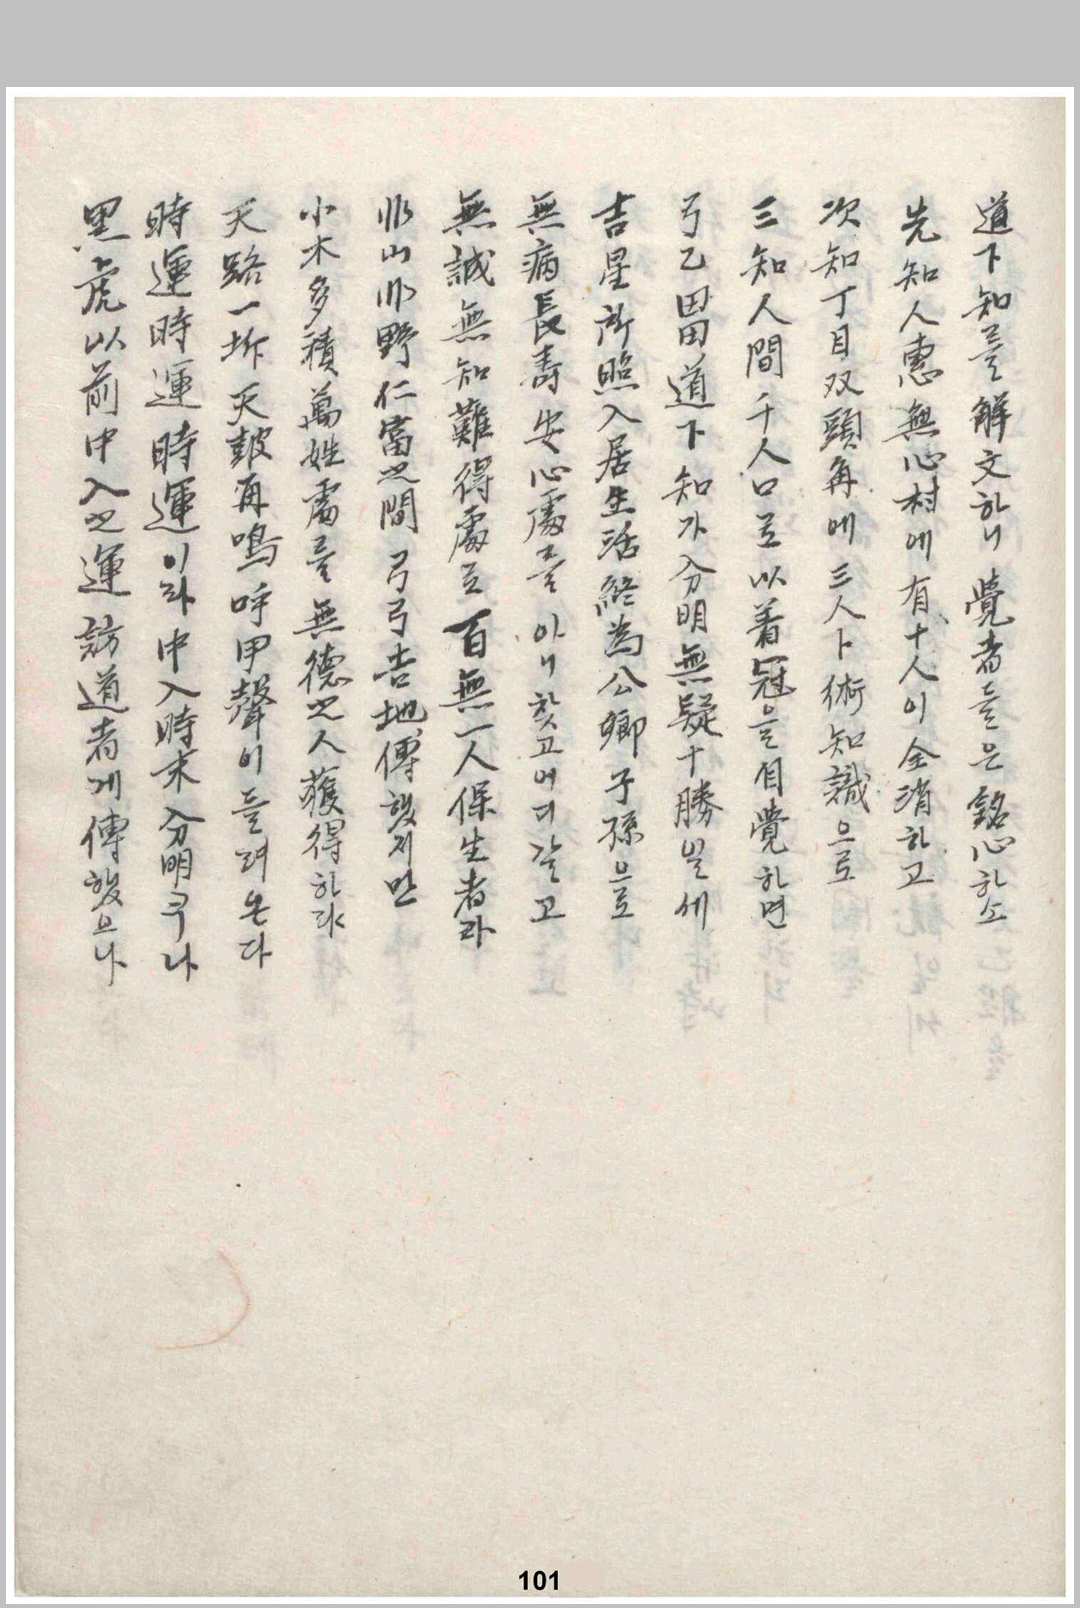 道下知를解文하니 覺者들은銘心하소
先知人惠無心村에 有十人이全消하고
次知丁目双頭角에三人卜術知識으로
三知人間千人口로以着冠을自覺하면
弓乙田田道下知가分明無疑十勝일세
吉星所照入居生活終爲公卿子孫으로
無病長壽安心處를아니찾고어디갈고
無誠無知難得處로百無一人保生者라
非山非野仁富之間弓弓吉地傳했지만
小木多積萬姓處를無德之人獲得하랴
天路一坼天鼓再鳴呼甲聲이들려온다
時運時運時運이라中入時末分明쿠나
黑虎以前中入之運訪道者게傳했으나
101